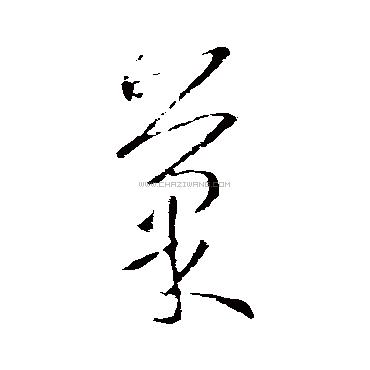 榮
WWW.CHAZIWANG.COM